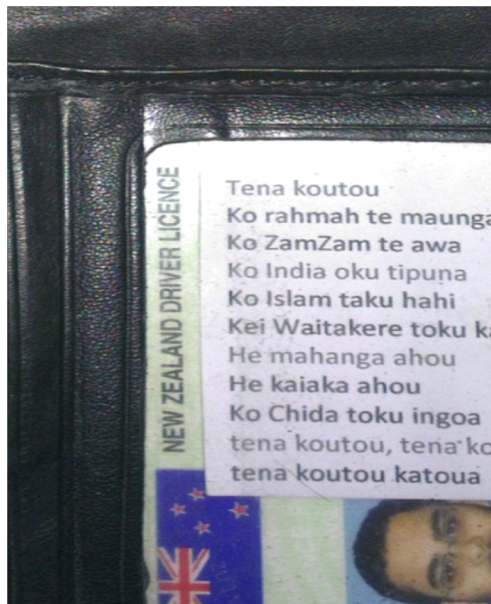 NEW ZEALAND DRIVER LICENCE
Tena koutou
Ko rahmah te maunga
Ko ZamZam te awa
Ko India oku tipuna
Ko Islam taku hahi
Kei Waitakere toku
He mahanga ahou
He kaiaka ahou
Ko Chida toku ingoa
tena koutou, tena
tena koutou katoua